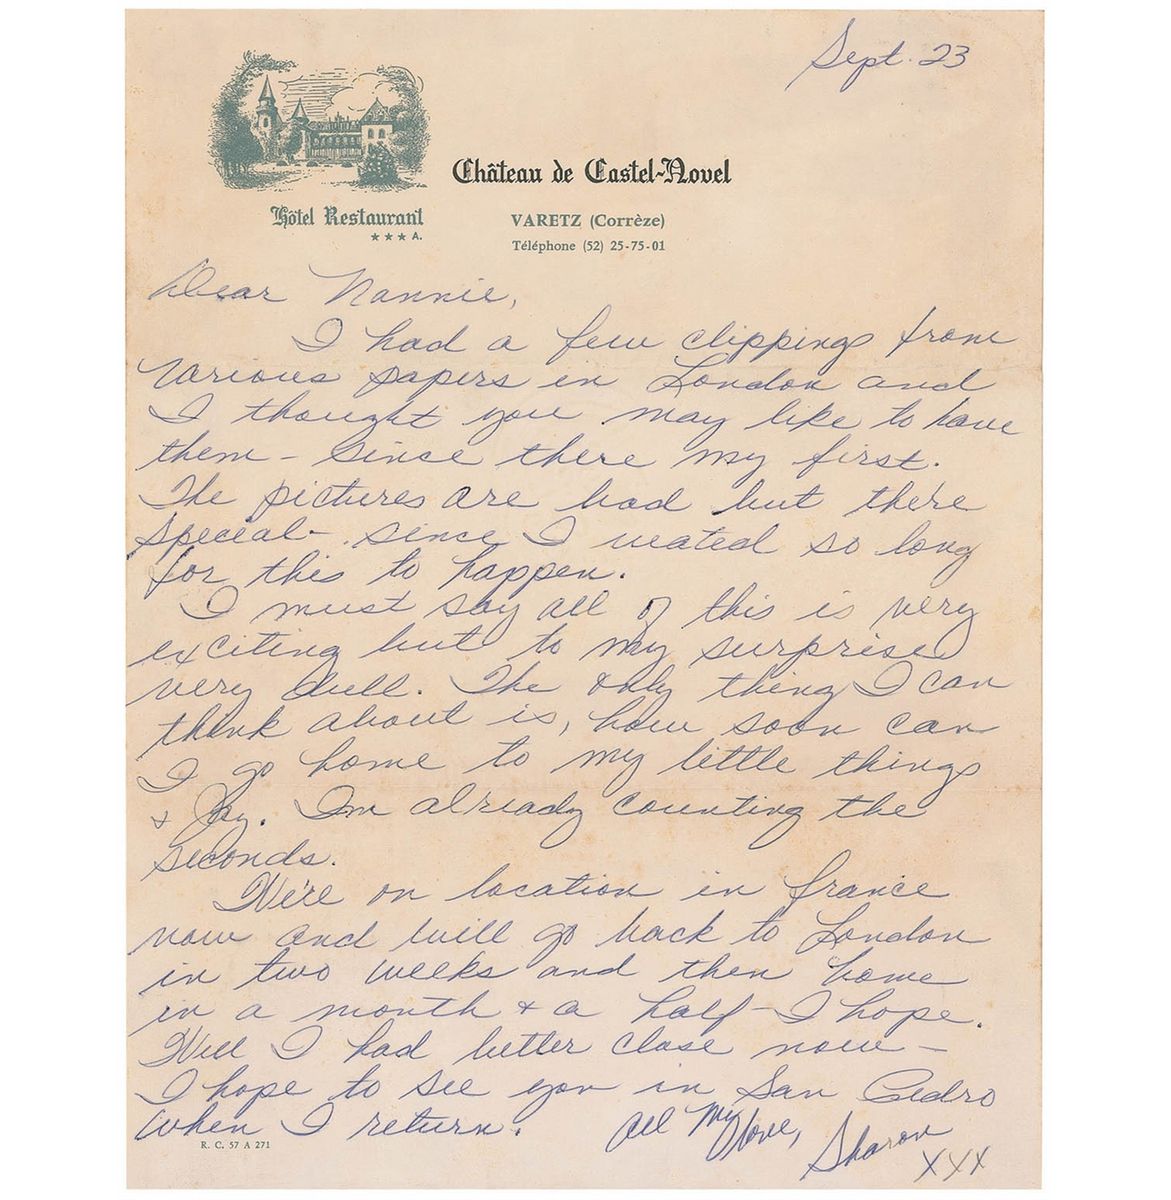 Sept. 23
Château de Castel-Novel
Hôtel Restaurant
★★★ A.
VARETZ (Corrèze)
Téléphone (52) 25-75-01
Dear Nannie,
I had a few clippings from
various papers in London and
I thought you may like to have
them - since there my first.
The pictures are bad but there
special - since I weated so long
for this to happen.
I must say all of this is very
exciting but to my surprise
very dull. The only thing I can
think about is, how soon can
I go home to my little things
& Jay. Im already counting the
seconds.
We're on location in france
now and will go back to London
in two weeks and then home
in a month & a half - I hope.
Well I had better close now -
I hope to see you in San Pedro
when I return.
All My love,
Sharon
XXX
R. C. 57 A 271